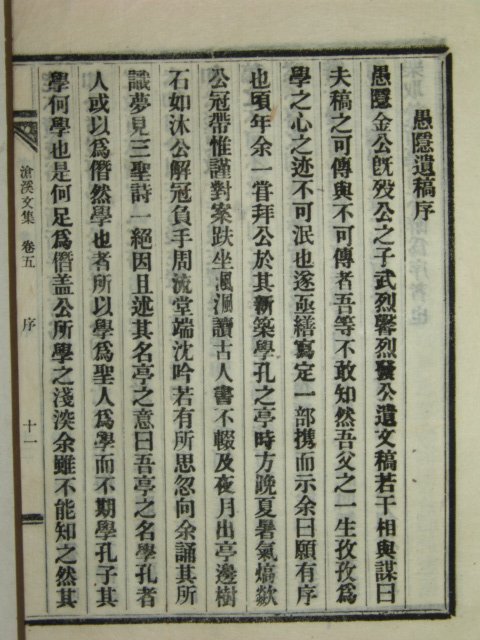 愚隱遺稿序
愚隱金公旣歿公之子武烈響烈發公遺文稿若干相與謀曰
夫稿之可傳與不可傳者吾等不敢知然吾父之一生孜孜爲
學之心之迹不可泯也遂亟繕寫定一部携而示余曰願有序
也頃年余一嘗拜公於其新築學孔之亭時方晩夏暑氣熇歊
公冠帶惟謹對案趺坐渢渢讀古人書不輟及夜月出亭邊樹
石如沐公解冠負手周流堂端沈吟若有所思忽向余誦其所
識夢見三聖詩一絕因且述其名亭之意曰吾亭之名學孔者
人或以爲僭然學也者所以學爲聖人爲學而不期學孔子其
學何學也是何足爲僭盖公所學之淺深余雖不能知之然其
滄溪文集 卷五 序 十一